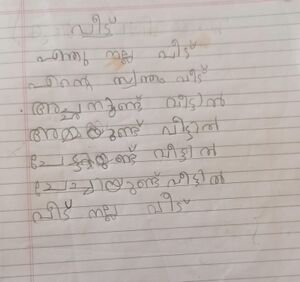 വീട്
എന്തു നല്ല വീട്
എന്റെ സ്വന്തം വീട്
അച്ഛനുണ്ട് വീട്ടിൽ
അമ്മയുണ്ട് വീട്ടിൽ
ചേട്ടനുണ്ട് വീട്ടിൽ
ചേച്ചിയുണ്ട് വീട്ടിൽ
വീട് നല്ല വീട്